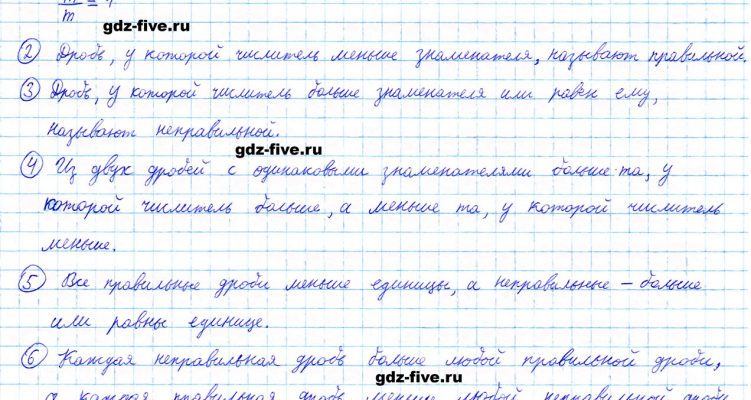 m/m = 1
gdz-five.ru
2 Дробь, у которой числитель меньше знаменателя, называют правильной.
3 Дробь, у которой числитель больше знаменателя или равен ему,
называют неправильной.
gdz-five.ru
4 Из двух дробей с одинаковыми знаменателями больше та, у
которой числитель больше, а меньше та, у которой числитель
меньше.
5 Все правильные дроби меньше единицы, а неправильные – больше
или равны единице.
6 Каждая неправильная дробь больше любой правильной дроби,
gdz-five.ru
а каждая правильная дробь меньше любой неправильной дроби